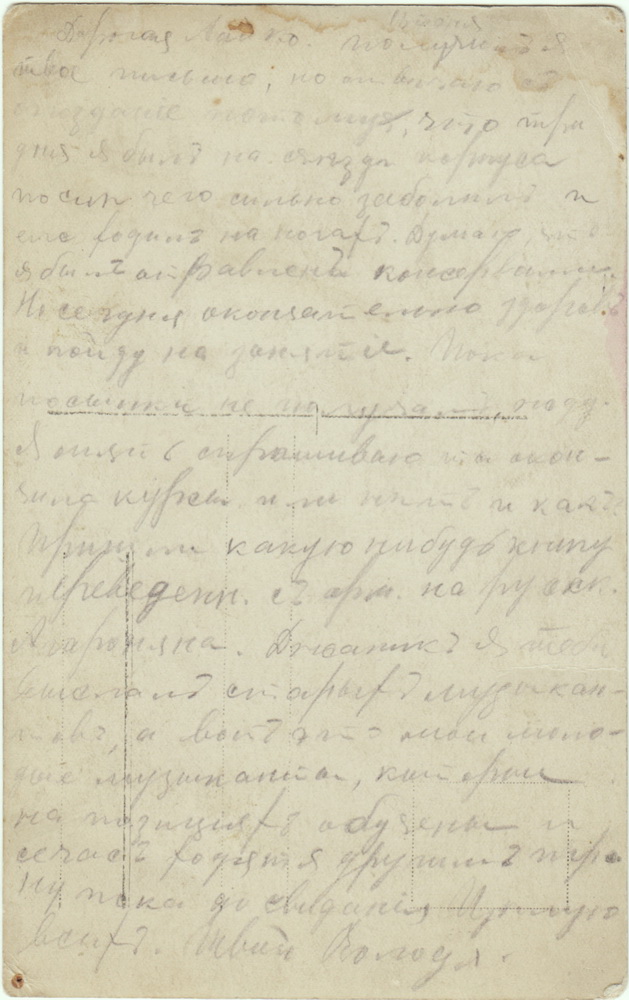 Дорогая получилъ я
твое письмо, но отвечаю съ
опозданiе потому, что три
дня я былъ на съезде корпуса
после чего сильно заболелъ и
еле ходилъ на ногахъ. Думаю, что
я былъ отравленъ консервами.
Но сегодня окончательно здоровъ
и пойду на занятiе. Пока
посылки не получалъ
Я опять спрашиваю ты окон-
чила курсы или нетъ и какъ
Пришли какую нибудь книгу
переведенн. съ арм. на русск.
Агароняна. Джаникъ я тебе
выслалъ старыхъ музыкан-
товъ, а вотъ это мои моло-
дые музыканты, которые
на позицiяхъ обучены и
сечасъ
Ну пока до свиданiя Целую
всехъ. Твой Володя.